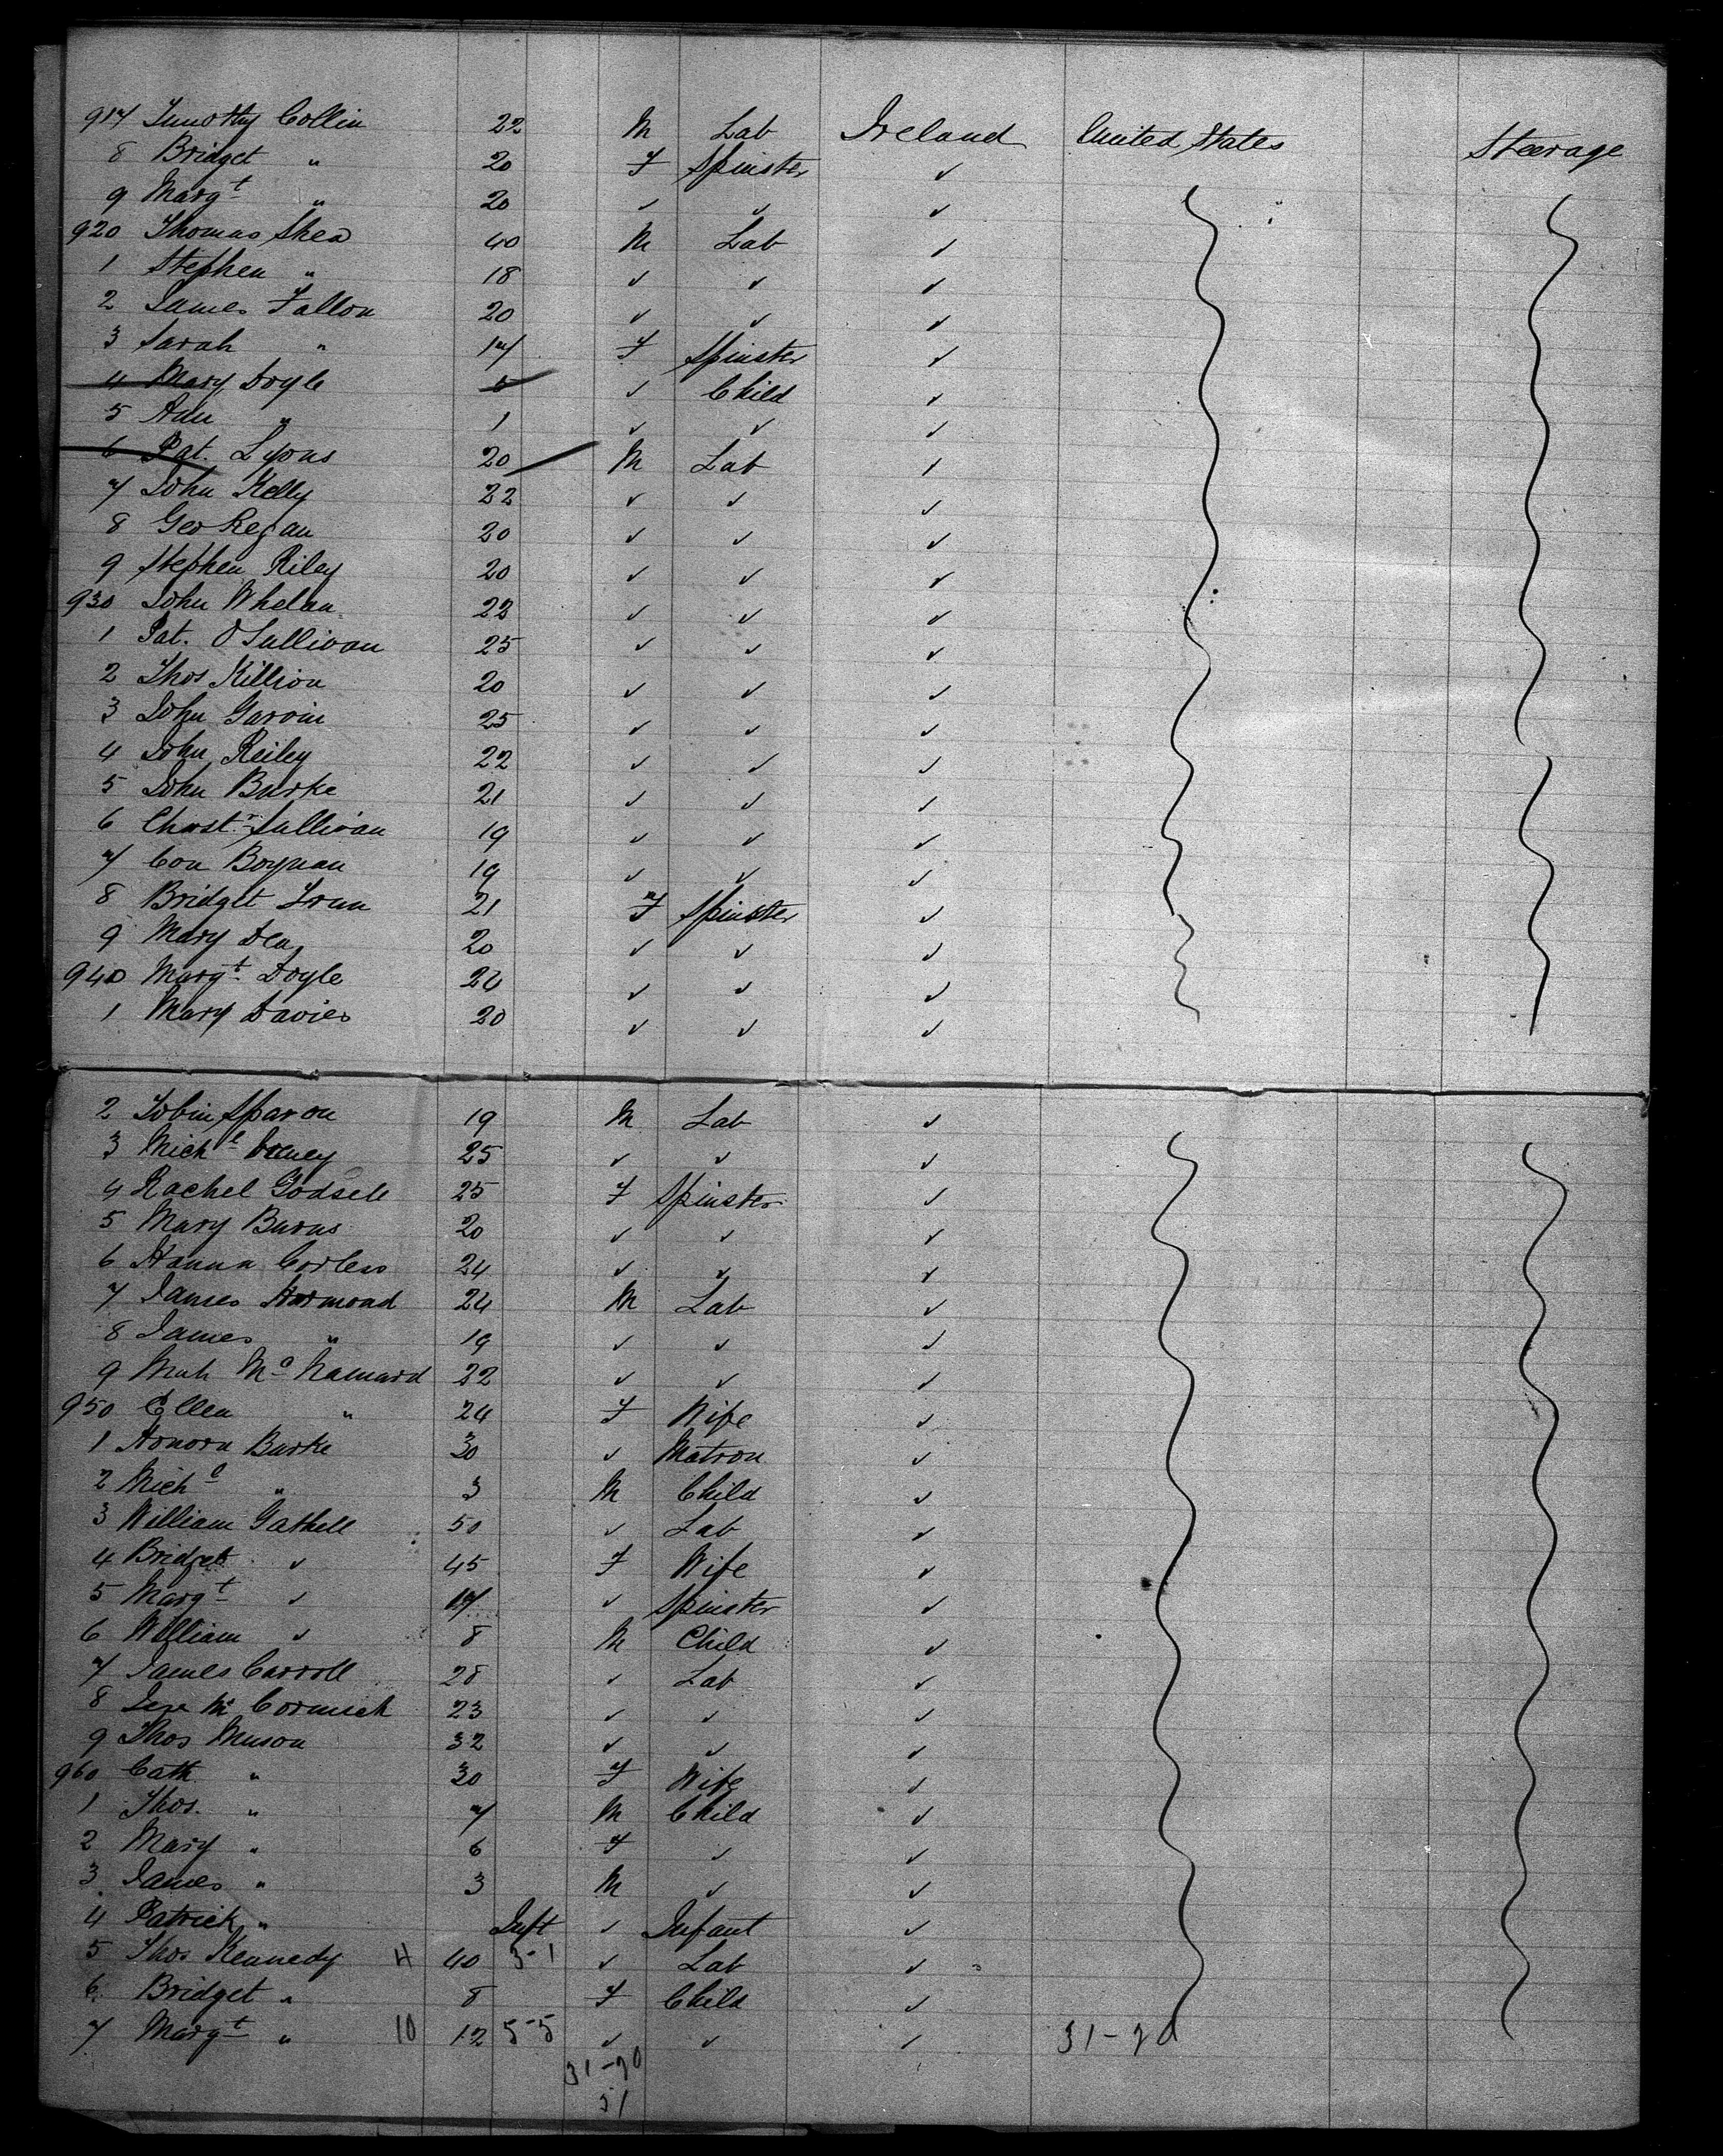 917 Timothy Collin 22 M Lab Ireland United States Steerage
8 Bridget " 20 F Spinster ✓
9 Margt " 20 ✓ ✓ ✓
920 Thomas Shea 40 M Lab ✓
1 Stephen " 18 ✓ ✓ ✓
2 James Fallon 20 ✓ ✓ ✓
3 Sarah " 17 F Spinster ✓
4 Mary Doyle ✓ Child ✓
5 Ann " 1 ✓ ✓ ✓
6 Pat. Lyons 20 M Lab ✓
7 John Kelly 22 ✓ ✓ ✓
8 Geo Regan 20 ✓ ✓ ✓
9 Stephen Riley 20 ✓ ✓ ✓
930 John Whelan 22 ✓ ✓ ✓
1 Pat. O Sullivan 25 ✓ ✓ ✓
2 Thos Killion 20 ✓ ✓ ✓
3 John Garvin 25 ✓ ✓ ✓
4 John Reiley 22 ✓ ✓ ✓
5 John Burke 21 ✓ ✓ ✓
6 Christr Sullivan 19 ✓ ✓ ✓
7 Con Boynan 19 ✓ ✓ ✓
8 Bridget 21 F Spinster ✓
9 Mary Dea 20 ✓ ✓ ✓
940 Margt Doyle 24 ✓ ✓ ✓
1 Mary Davies 20 ✓ ✓ ✓
2 Tobin Sparon 19 M Lab ✓
3 Michl 25 ✓ ✓ ✓
4 Rachel Godsell 25 F Spinster ✓
5 Mary Burns 20 ✓ ✓ ✓
6 Hanna Corless 24 ✓ ✓ ✓
7 James Hormond 24 M Lab ✓
8 James " 19 ✓ ✓ ✓
9 Mich McNamard 22 ✓ ✓ ✓
950 Ellen " 24 F Wife ✓
1 Honora Burke 30 ✓ Matron ✓
2 Michl " 3 M Child ✓
3 William Gathell 50 ✓ Lab ✓
4 Bridget ✓ 45 F Wife ✓
5 Margt ✓ 17 ✓ Spinster ✓
6 William ✓ 8 M Child ✓
7 James Carroll 28 ✓ Lab ✓
8 Jere McCormick 23 ✓ ✓ ✓
9 Thos Muson 32 ✓ ✓ ✓
960 Cath " 30 F Wife ✓
1 Thos. " 7 M Child ✓
2 Mary " 6 F ✓ ✓
3 James " 3 M ✓ ✓
4 Patrick " Inft ✓ Infant ✓
5 Thos Kennedy H 40 3-1 ✓ Lab ✓
6 Bridget " 8 F Child ✓
7 Margt " 10 12 5-5 ✓ ✓ ✓ 31-20
31-20
51